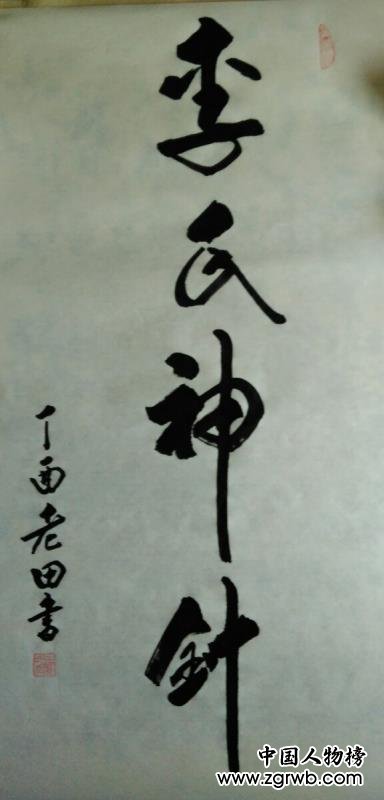 李氏神針
丁酉老田書
中国人物榜
www.zgrwb.com